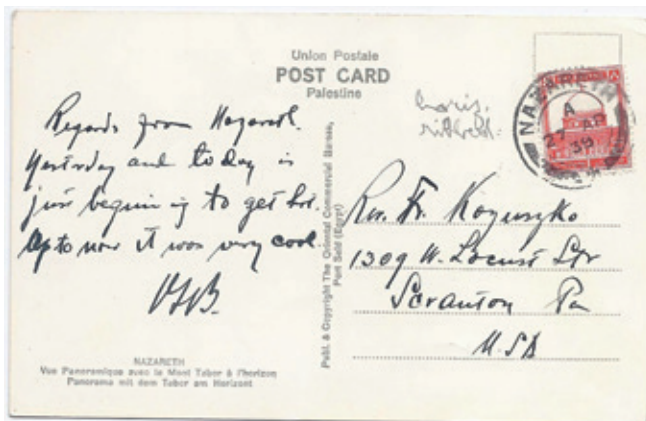 Union Postale
POST CARD
Palestine
Regards from Nazareth.
Yesterday and today is
just beginning to get hot.
Up to now it was very cool.
NAZARETH
Vue Panoramique avec le Mont Tabor à l'horizon
Panorama mit dem Tabor am Horizont
Publ. & Copyright The Oriental Commercial Bureau,
Port Said (Egypt)
NAZARETH
A
27 AP
39
Rev. Fr.
1309 W. Locust Str
Scranton Pa
USA